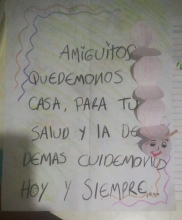 AMIGUITOS
QUEDEMONOS
CASA, PARA TU
SALUD Y LA DE
DEMAS CUIDEMONO
HOY Y SIEMPRE...